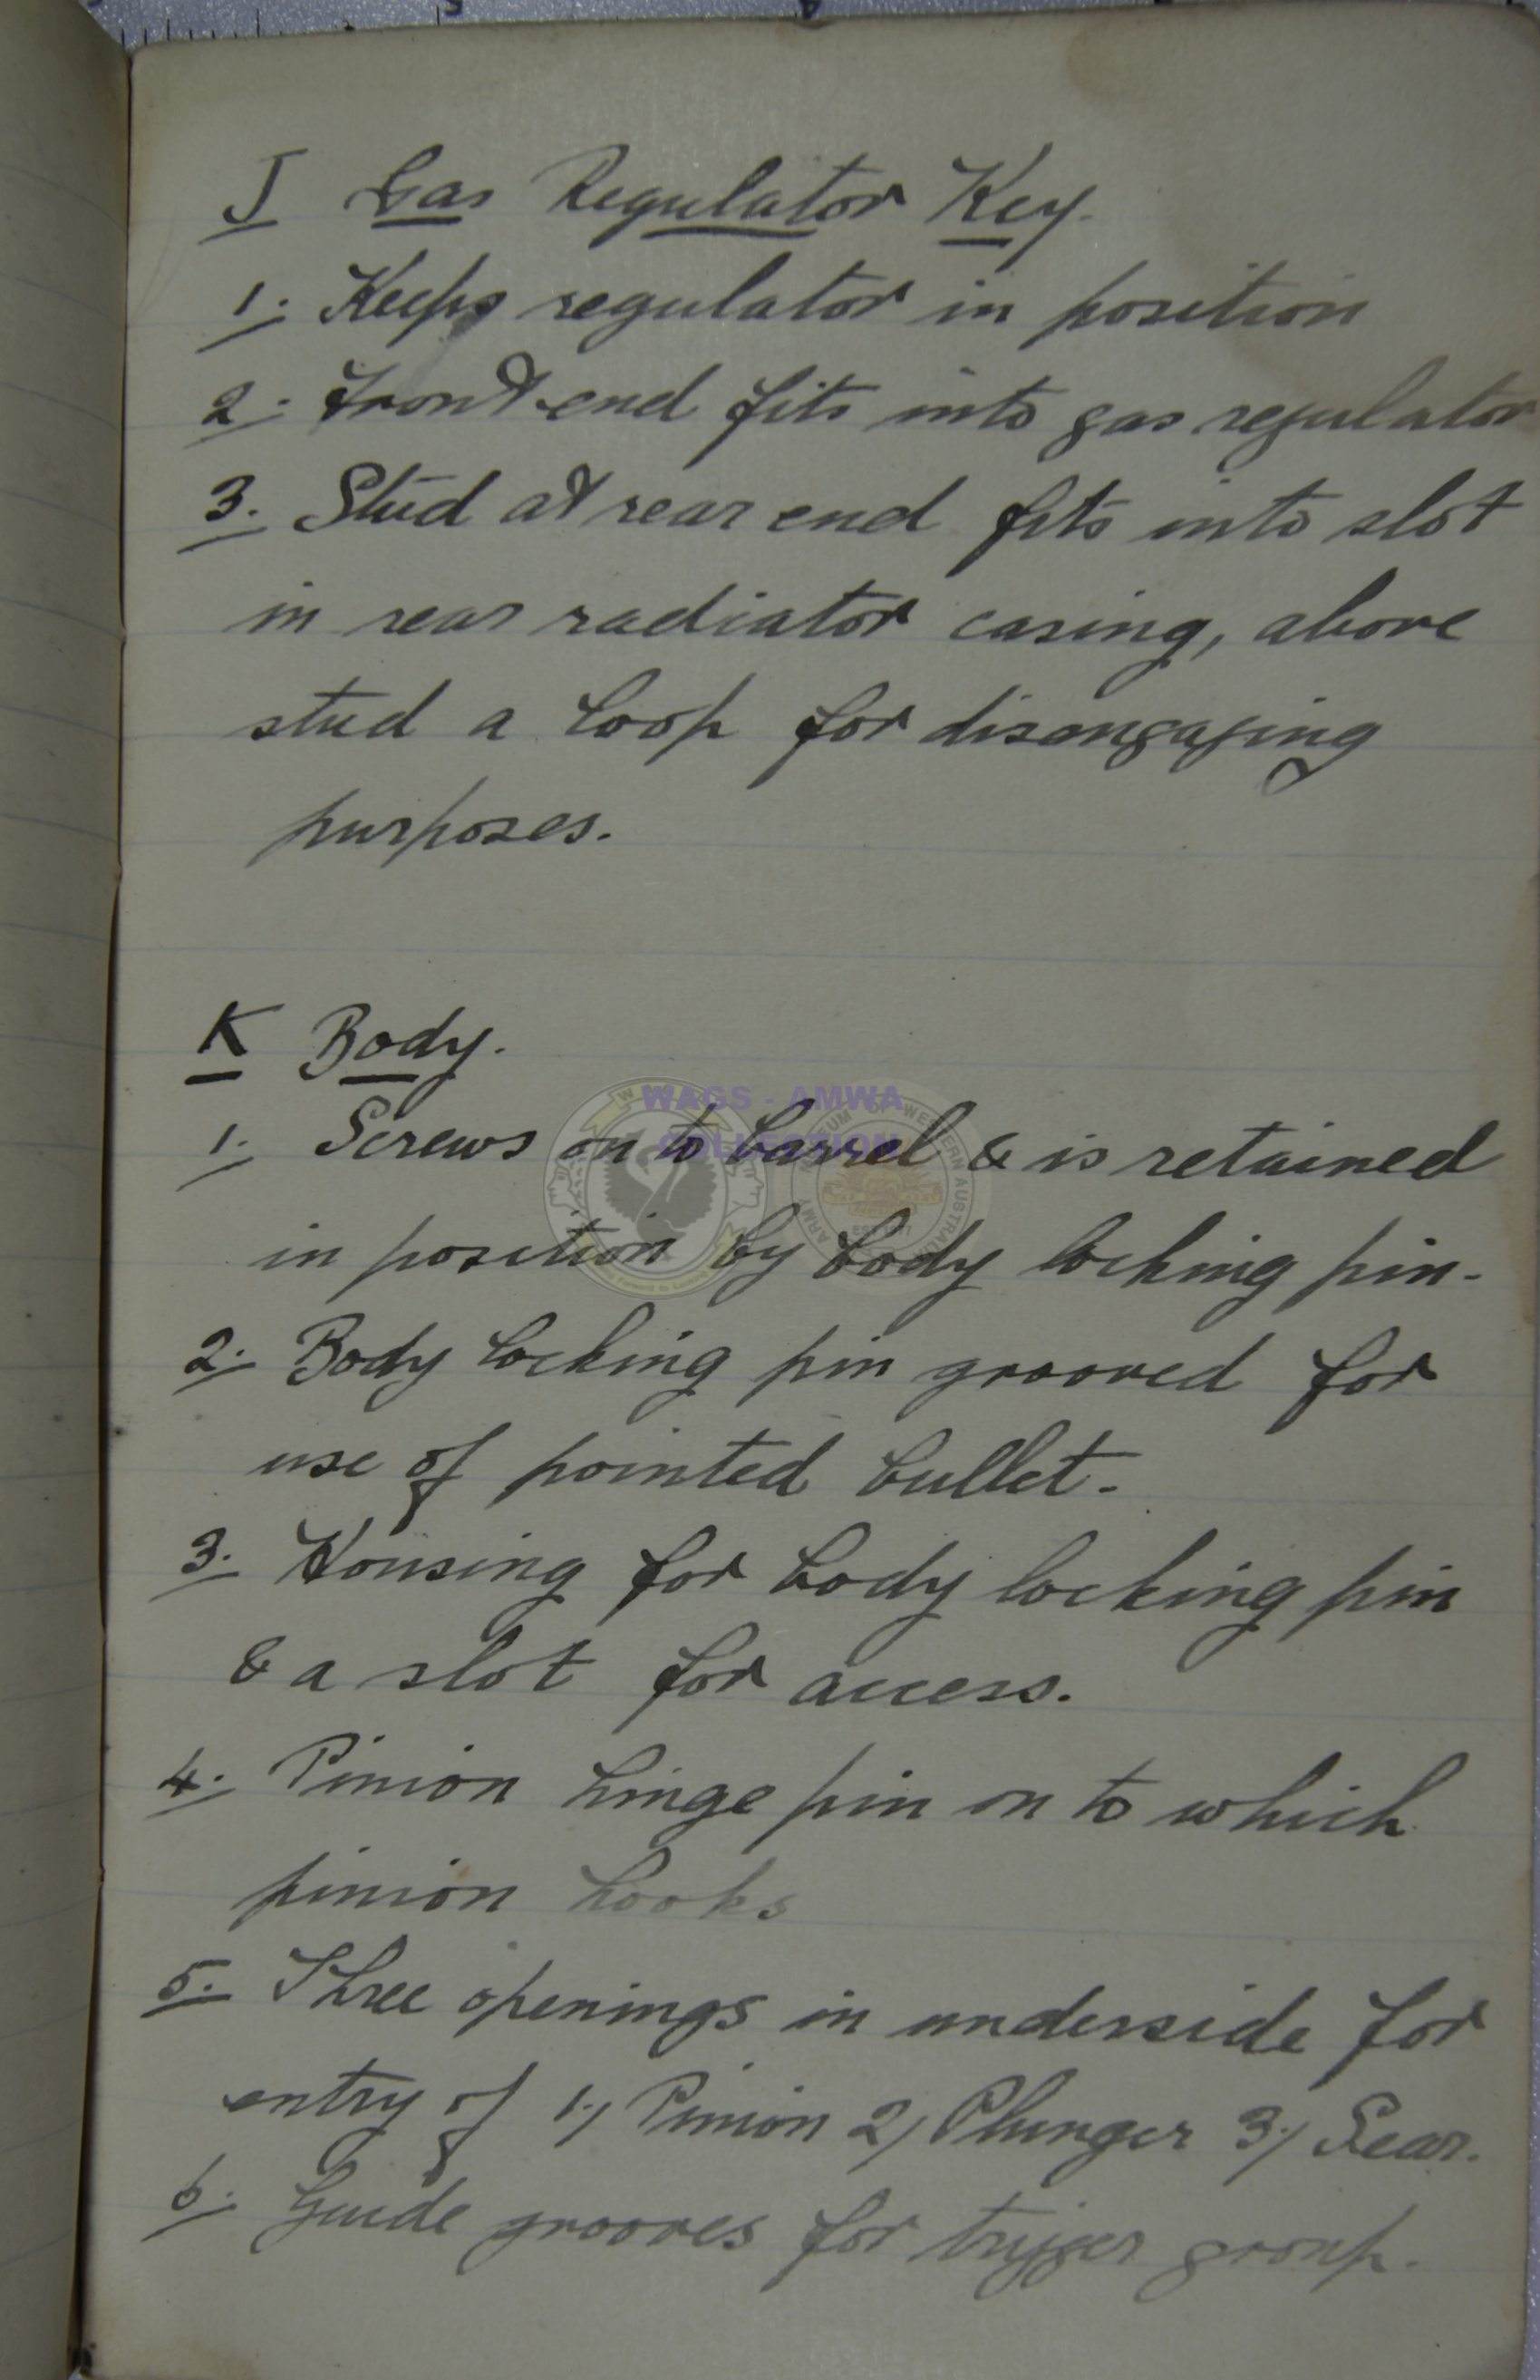 J Gas Regulator Key.
1. Keeps regulator in position
2. Front end fits into gas regulator
3. Stud at rear end fits into slot
in rear radiator casing, above
stud a loop for disengaging
purposes.
K Body.
WAGS - AMWA
COLLECTION
1. Screws on to barrel & is retained
in position by body locking pin.
2. Body locking pin grooved for
use of pointed bullet.
3. Housing for body locking pin
& a slot for access.
4. Pinion hinge pin on to which
pinion hooks
5. Three openings in underside for
entry of 1./ Pinion 2/ Plunger 3/ Sear.
6. Guide grooves for trigger group.